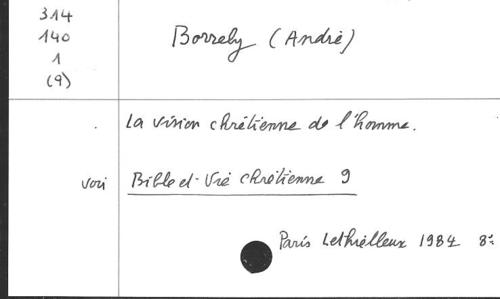 314
140
1
(9)
Borrely (André)
La vision chrétienne de l'homme.
voir Bible et Vie chrétienne 9
Paris Lethielleux 1984 8°